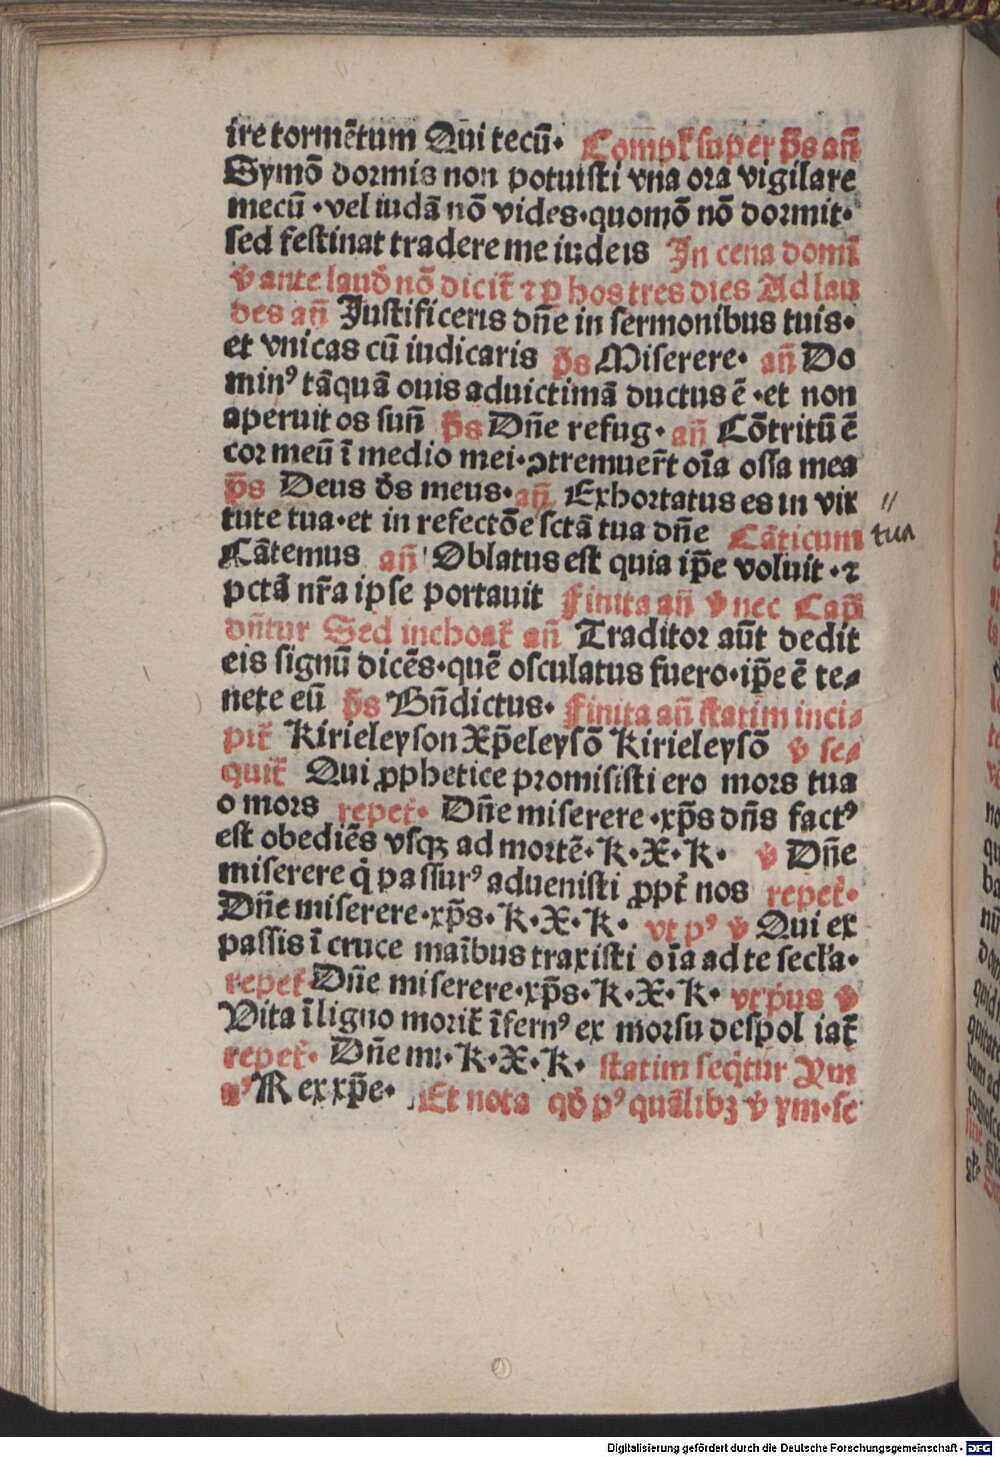 ire tormētum Qui tecū· Comp̄ƙ super p̄s an̄
Symō dormis non potuisti vna ora vigilare
mecū ·vel iudā nō vides·quomō nō dormit·
sed festinat tradere me iudeis In cena domī
v̾ ante laud̾ nō dicit̄ ⁊ p hos tres dies Ad lau
des an̄ Justificeris dn̄e in sermonibus tuis·
et vnicas cū iudicaris p̄s Miserere· an̄ Do
minꝰ tāquā ouis aduictimā ductus ē ·et non
aperuit os suū p̄s Dn̄e refug· an̄ Cōtritū ē
cor meū ī medio mei·ꝯtremuer̄t oīa ossa mea
p̄s Deus d̾s meus· an̄ Exhortatus es in vir
tute tua·et in refectōe sctā tua dn̄e Cāticum
tua
Cātemus an̄ Oblatus est quia ip̄e voluit ·⁊
pctā nr̄a ipse portauit Finita an̄ v̾ nec Cap̄ƚ
dn̄tur Sed inchoat̾ an̄ Traditor aūt dedit
eis signū dicēs·quē osculatus fuero·ip̄e ē te⸗
nete eū p̄s Bn̄dictus· Finita an̄ statim inci⸗
pit̾ Kirieleyson Xp̄eleysō Kirieleysō v̾ se⸗
quit̾ Qui ꝓphetice promisisti ero mors tua
o mors repet̾· Dn̄e miserere ·xp̄s dn̄s factꝰ
est obediēs vsqꝫ ad mortē·K·X·K· v̾ Dn̄e
miserere q̇ passurꝰ aduenisti ꝓpt̾ nos repet̾·
Dn̄e miserere·xp̄s·K·X·K· vt pꝰ v̾ Qui ex
passis ī cruce maībus traxisti oīa ad te secƚa·
repet̾ Dn̄e miserere·xp̄s·K·X·K· vt p̾us v̾
Vita ī ligno morit̾ īfernꝰ ex morsu despol iat̾
repet̾· Dn̄e mi·K·X·K· statim seq̇tur Ym
nꝰ Rex xp̄e· Et nota qd̾ pꝰ quālibꝫ v̾ ym·se
Digitalisierung gefördert durch die Deutsche Forschungsgemeinschaft - DFG